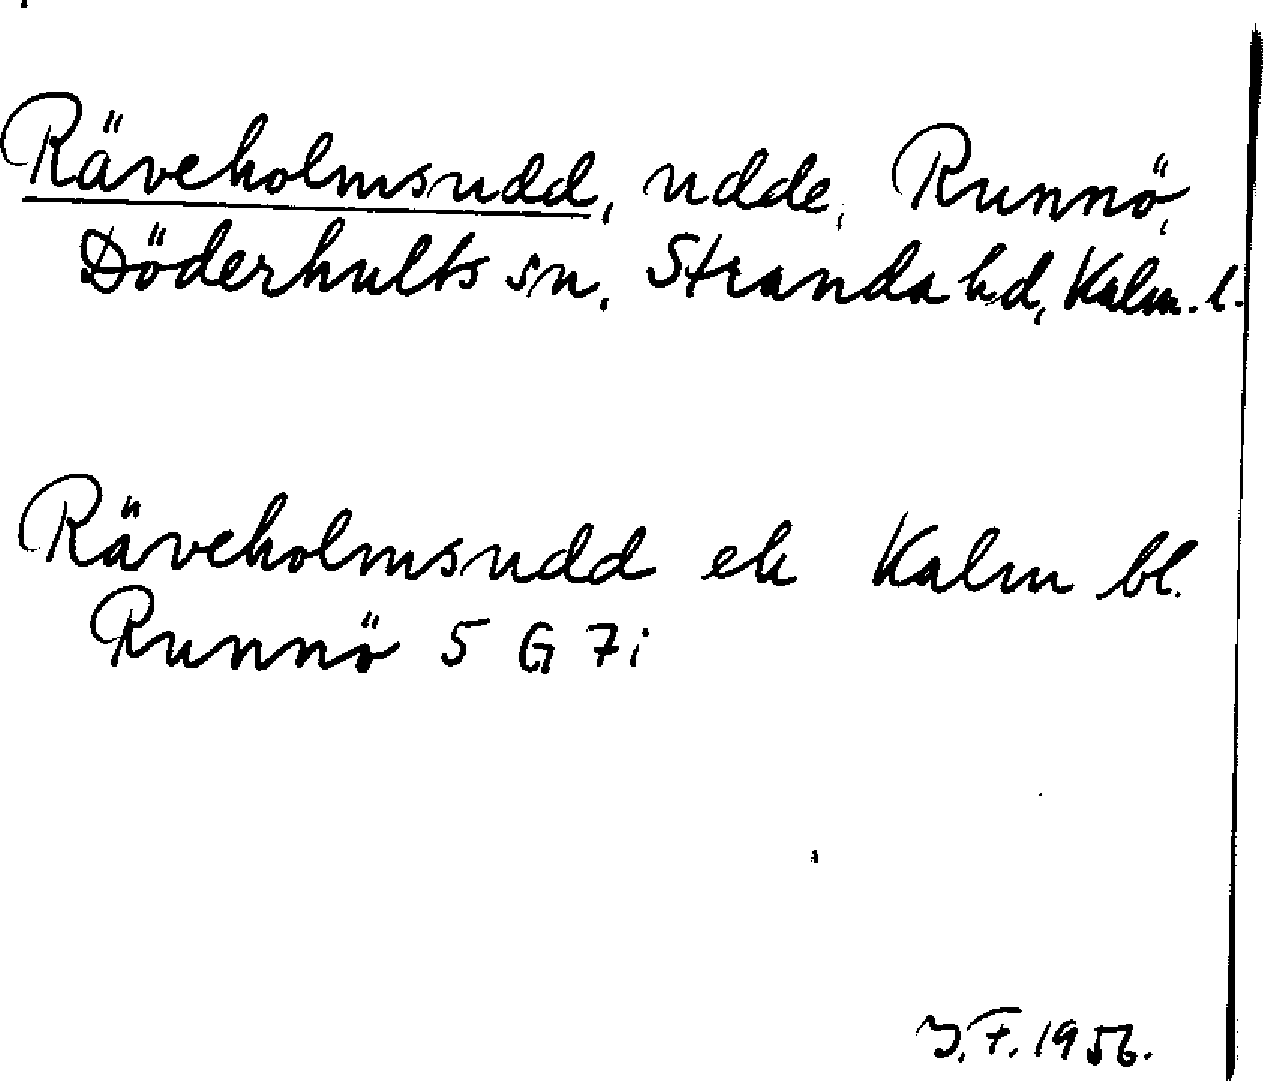 Räveholmsudd, udde, Runnö,
Döderhults sn, Stranda hd, Kalm. l.
Räveholmsudd ek Kalm bl.
Runnö 5 G 7i
J.F. 1956.